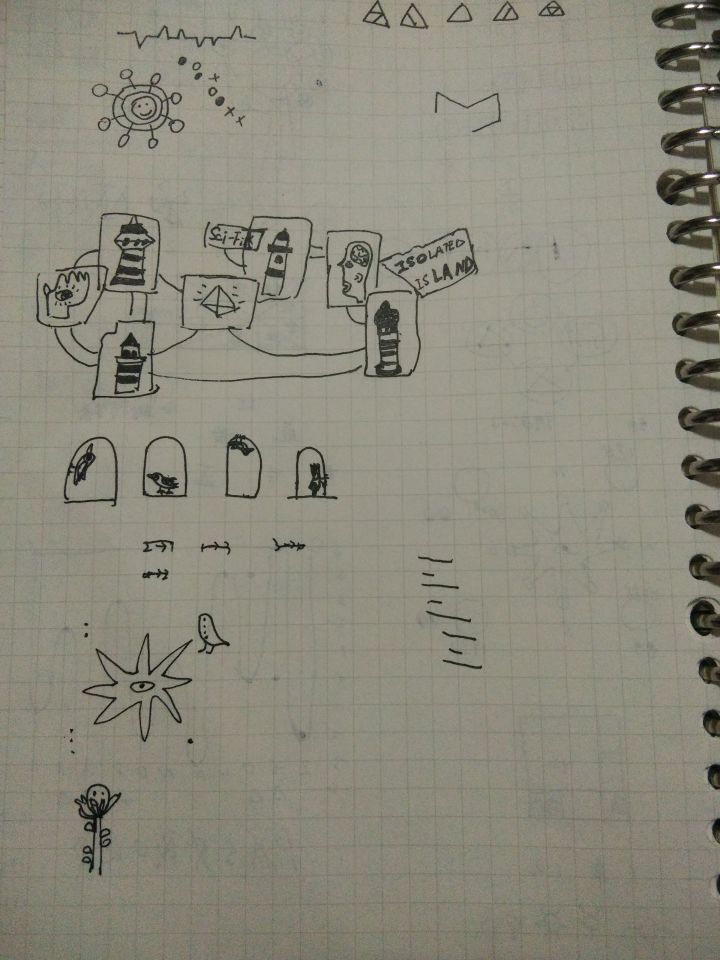 Sci-Fi
ISOLATED
ISLAND